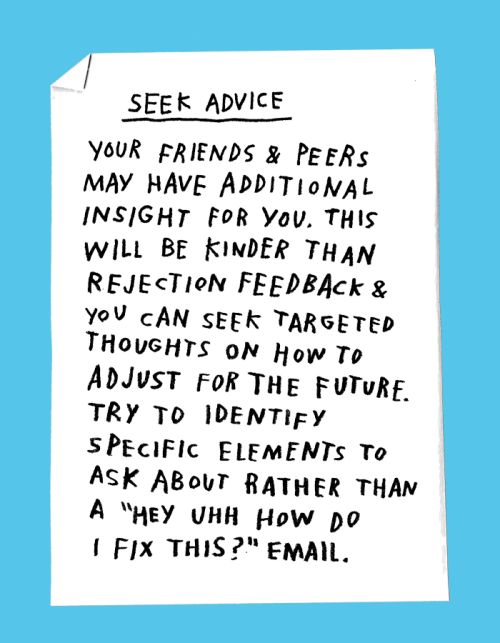 SEEK ADVICE
YOUR FRIENDS & PEERS
MAY HAVE ADDITIONAL
INSIGHT FOR YOU. THIS
WILL BE KINDER THAN
REJECTION FEEDBACK &
YOU CAN SEEK TARGETED
THOUGHTS ON HOW TO
ADJUST FOR THE FUTURE.
TRY TO IDENTIFY
SPECIFIC ELEMENTS TO
ASK ABOUT RATHER THAN
A "HEY UHH HOW DO
I FIX THIS?" EMAIL.